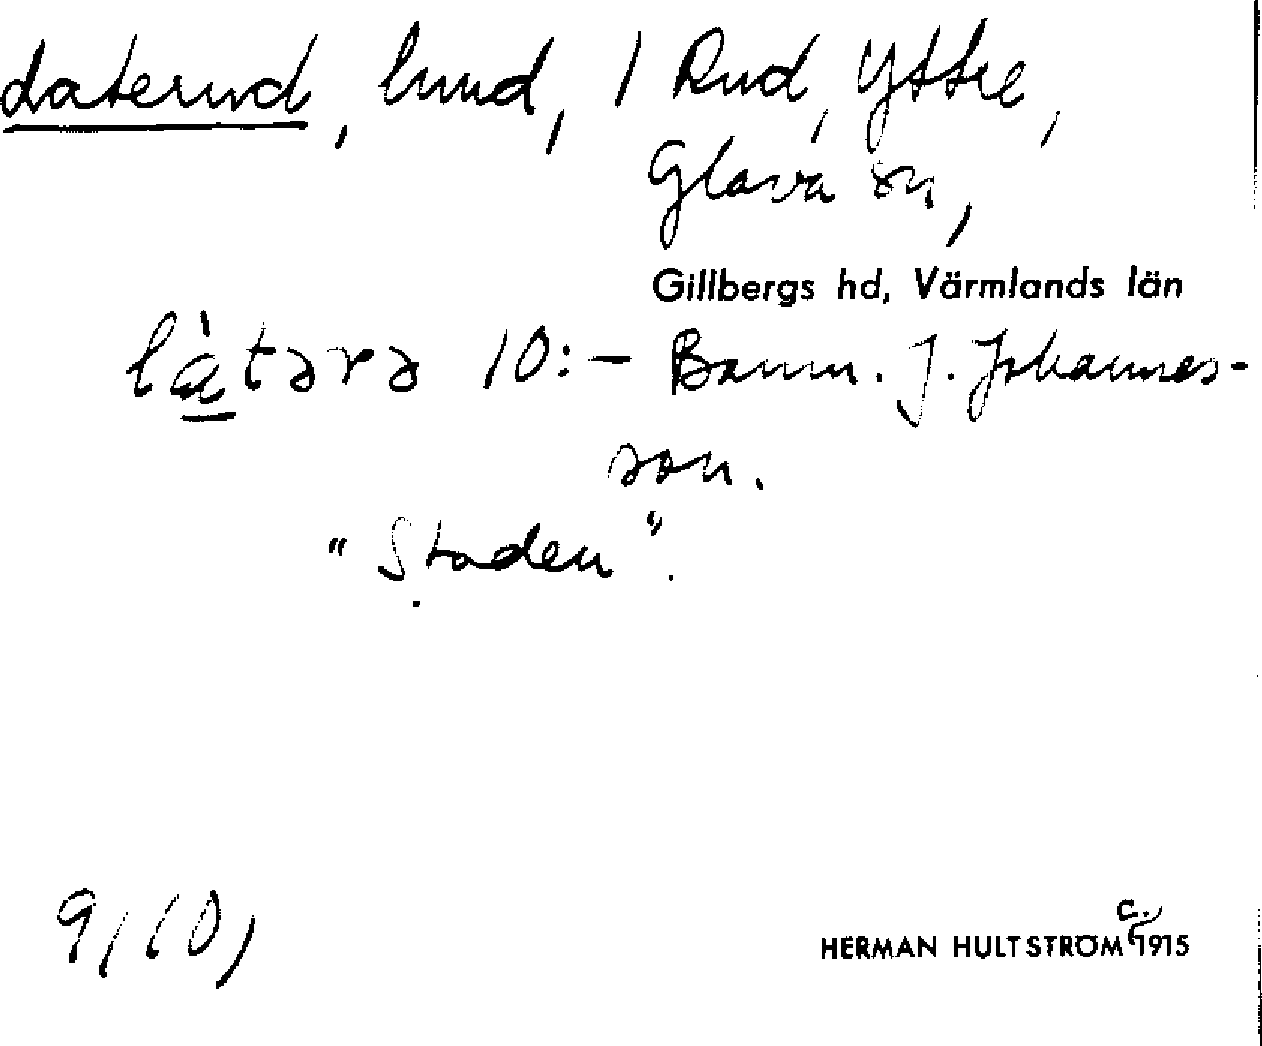 daterud, lund, 1 Rud, Yttre,
Glava sn,
Gillbergs hd, Värmlands län
lą̀tərə 10:- Banm. J. Johannes-
son.
"Staden".
9, 10,
c.
HERMAN HULTSTRÖM 1915